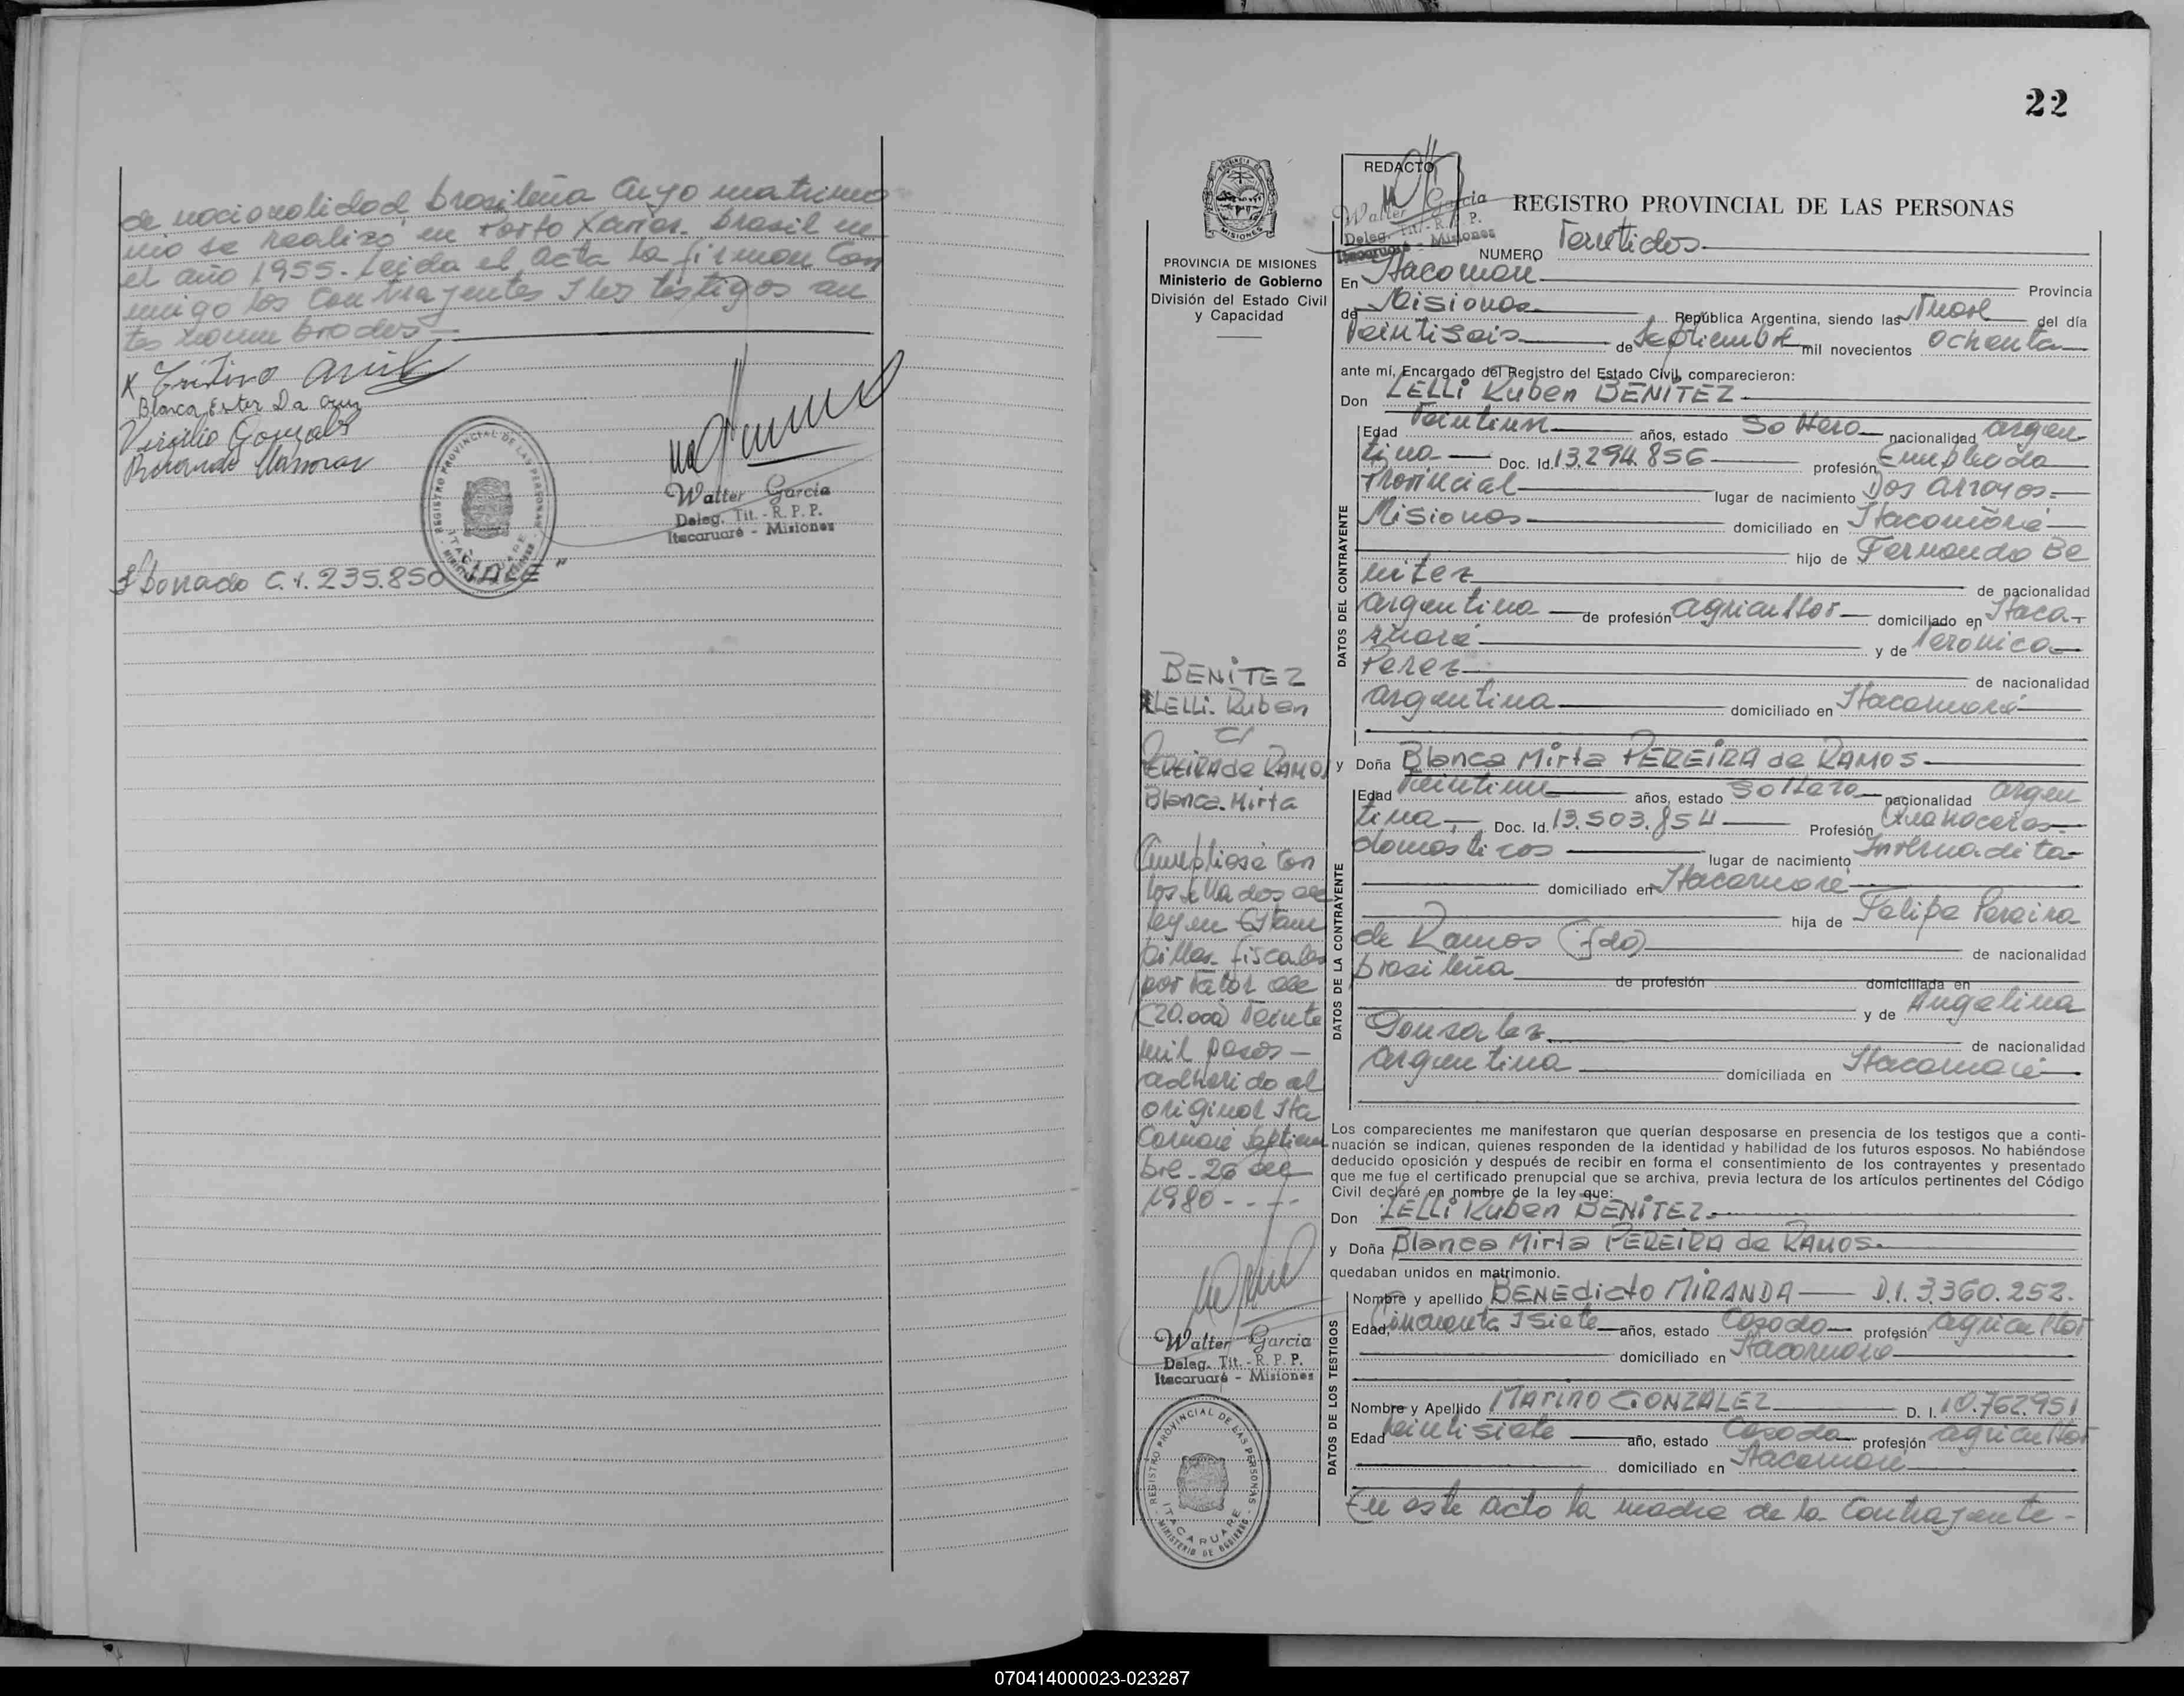 de nacionalidad brasileña Cuyo matrimo
nio se realizó en Porto Xavier. Brasil en
el año 1955. Leida el acta la firman Con
migo los Contrayentes y los testigos an
tes nombrados
X
Blanca Ester Da Cruz
Virgilio Gonzalez
REGISTRO PROVINCIAL DE LAS PERSONAS
Walter Garcia
Deleg. Tit. - R. P. P.
Itacaruaré - Misiones
Borrado C.I. 235.850 VALE"
22
PROVINCIA DE MISIONES
Ministerio de Gobierno
División del Estado Civil
y Capacidad
REDACTO
Walter Garcia
Deleg. Tit. - R. P. P.
Itacaruaré - Misiones
REGISTRO PROVINCIAL DE LAS PERSONAS
NUMERO Veintidos
En Itacaruaré Provincia
de Misiones República Argentina, siendo las Nueve del día
Veintiseis de Septiembre mil novecientos ochenta
ante mí, Encargado del Registro del Estado Civil, comparecieron:
Don LELLI Ruben BENITEZ
DATOS DEL CONTRAYENTE
Edad Veintiun años, estado Soltero nacionalidad argen
tina Doc. Id. 13.294.856 profesión Empleado
Provincial lugar de nacimiento Dos Arroyos
Misiones domiciliado en Itacaruaré
hijo de Fernando Be
nitez de nacionalidad
argentina de profesión agricultor domiciliado en Itaca-
ruaré y de Veronica
Perez de nacionalidad
argentina domiciliado en Itacaruaré
y Doña Blanca Mirta PEREIRA de RAMOS
DATOS DE LA CONTRAYENTE
Edad Veintiun años, estado Soltera nacionalidad argen
tina Doc. Id. 13.503.854 Profesión Quehaceres
domesticos lugar de nacimiento Invernadita
domiciliado en Itacaruaré
hija de Felipe Pereira
de Ramos (fdo) de nacionalidad
brasileña de profesión domiciliada en
y de Angelina
Gonzalez de nacionalidad
argentina domiciliada en Itacaruaré
Los comparecientes me manifestaron que querían desposarse en presencia de los testigos que a conti-
nuación se indican, quienes responden de la identidad y habilidad de los futuros esposos. No habiéndose
deducido oposición y después de recibir en forma el consentimiento de los contrayentes y presentado
que me fue el certificado prenupcial que se archiva, previa lectura de los artículos pertinentes del Código
Civil declaré en nombre de la ley que:
Don LELLI Ruben BENITEZ
y Doña Blanca Mirta PEREIRA de RAMOS
quedaban unidos en matrimonio.
DATOS DE LOS TESTIGOS
Nombre y apellido BENEdicto MIRANDA D.I. 3.360.252.
Edad, Cincuenta y Siete años, estado Casado profesión agricultor
domiciliado en Itacaruaré
Nombre y Apellido MARINO GONZALEZ D. I. 10.762.951
Edad Veintisiete año, estado Casado profesión agricultor
domiciliado en Itacaruaré
En este acto la madre de la Contrayente-
BENITEZ
LELLI. Ruben
c/
PEREIRA de RAMOS
Blanca Mirta
Cumpliose Con
los sellados de
ley en Estam
pillas fiscales
por valor de
(20.000) Veinte
mil pesos -
adherido al
original Ita
Caruaré Septiem
bre - 26 de
1980 - - - -
Walter Garcia
Deleg. Tit. - R. P. P.
Itacaruaré - Misiones
REGISTRO PROVINCIAL DE LAS PERSONAS
ITACARUARE
MINISTERIO DE GOBIERNO
070414000023-023287